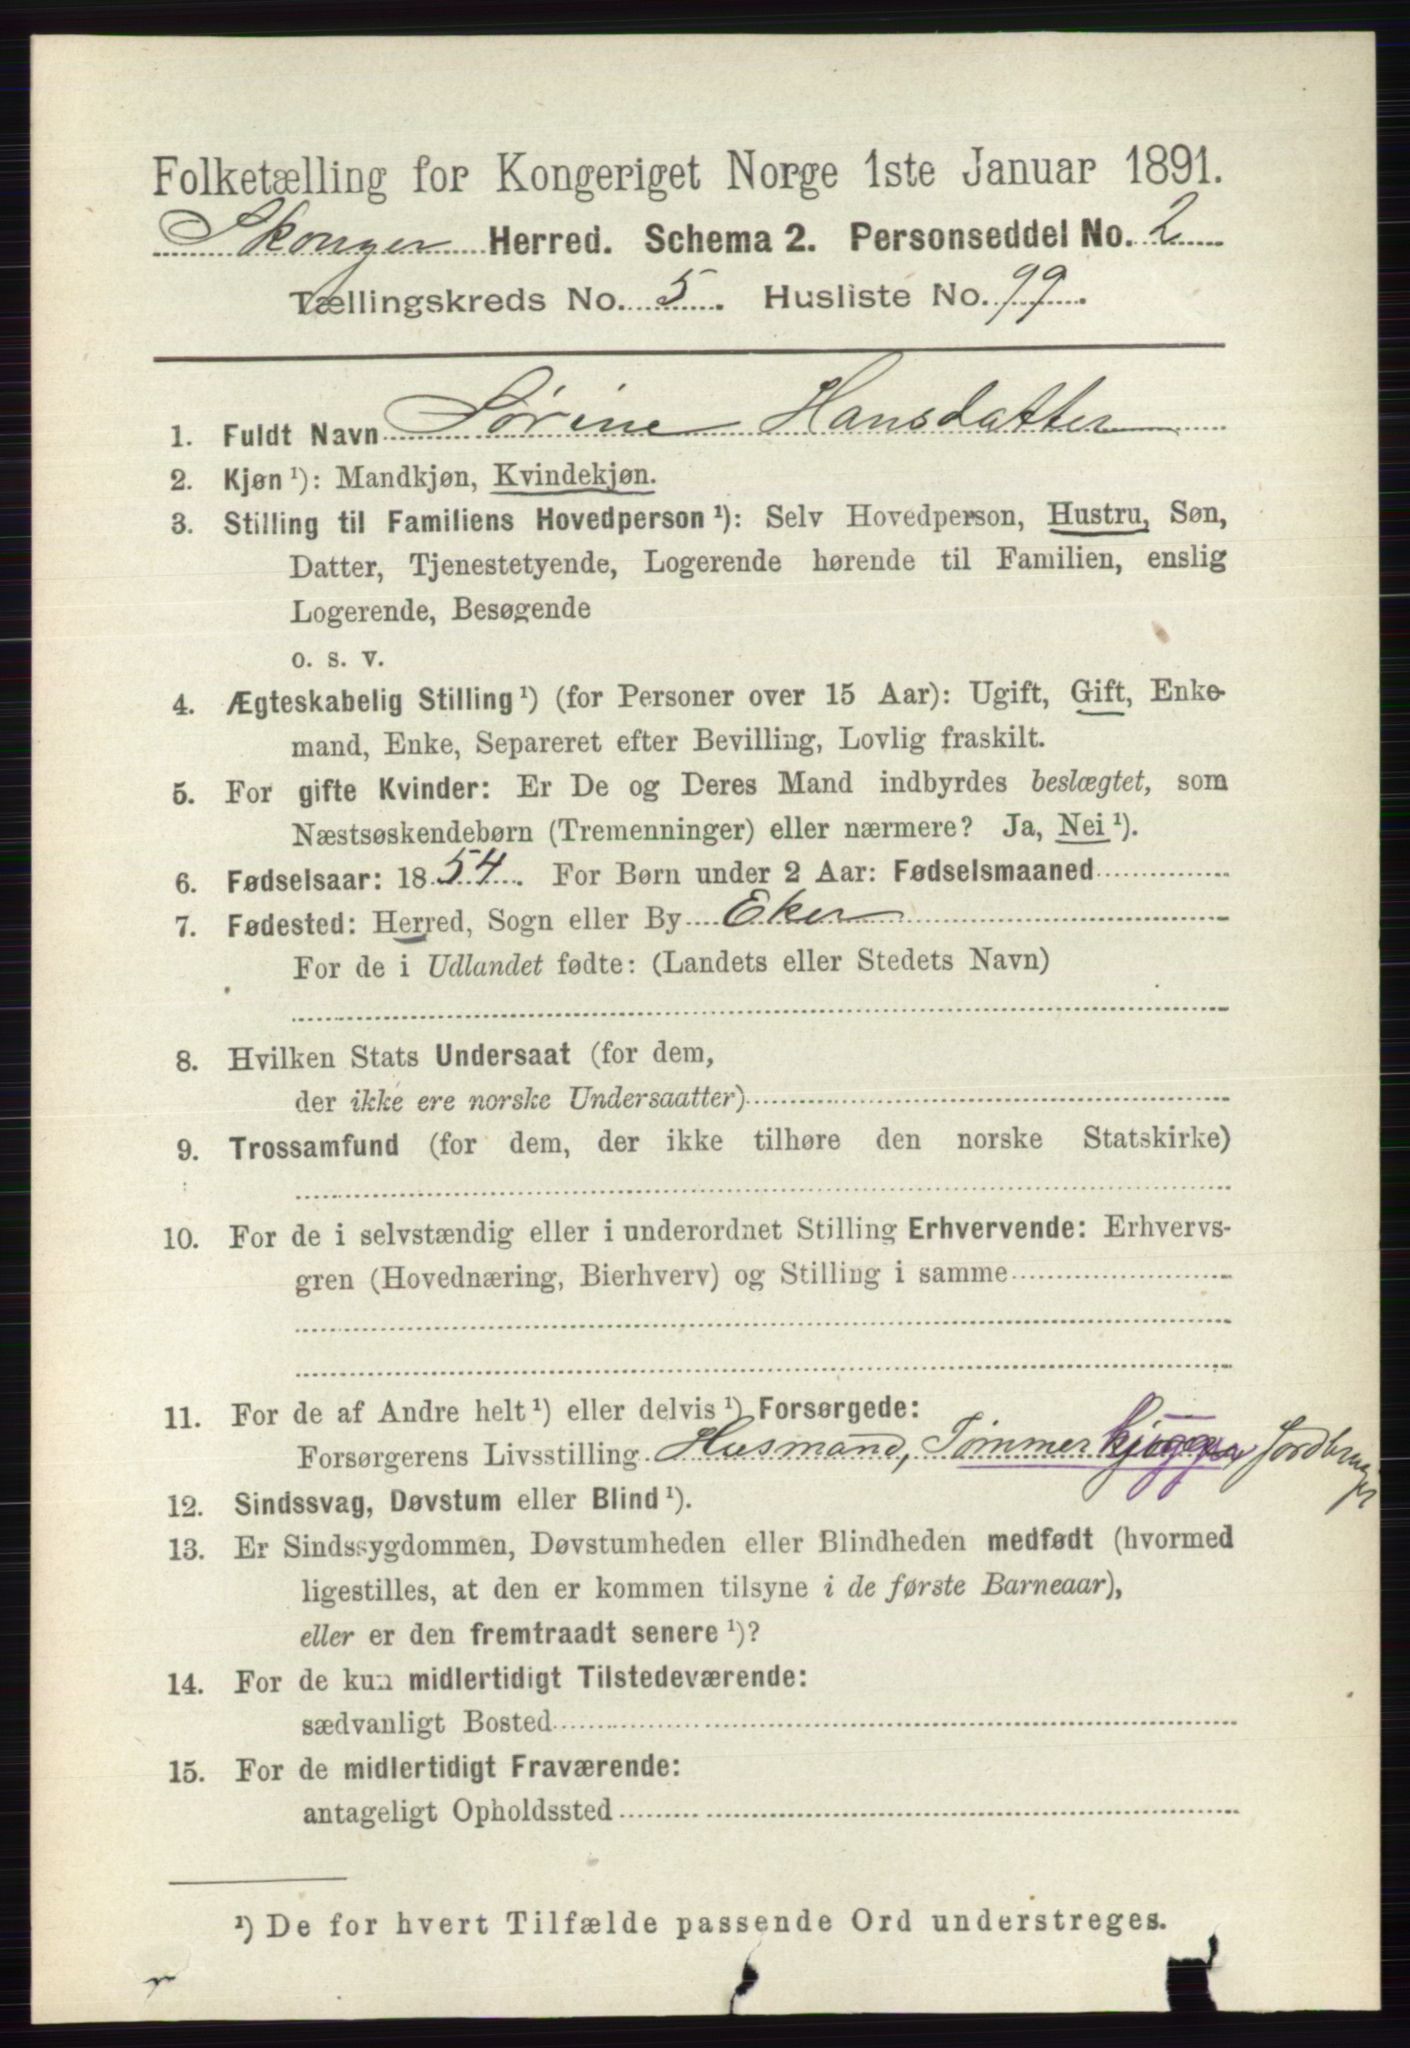 Folketælling for Kongeriget Norge 1ste Januar 1891.
Skouger Herred. Schema 2. Personseddel No. 2
Tællingskreds No. 5. Husliste No. 99.
1. Fuldt Navn Sørine Hansdatter
2. Kjøn ¹): Mandkjøn, Kvindekjøn.
3. Stilling til Familiens Hovedperson ¹): Selv Hovedperson, Hustru, Søn,
Datter, Tjenestetyende, Logerende hørende til Familien, enslig
Logerende, Besøgende
o. s. v.
4. Ægteskabelig Stilling ¹) (for Personer over 15 Aar): Ugift, Gift, Enke-
mand, Enke, Separeret efter Bevilling, Lovlig fraskilt.
5. For gifte Kvinder: Er De og Deres Mand indbyrdes beslægtet, som
Næstsøskendebørn (Tremenninger) eller nærmere? Ja, Nei ¹).
6. Fødselsaar: 1854. For Børn under 2 Aar: Fødselsmaaned
7. Fødested: Herred, Sogn eller By Eker
For de i Udlandet fødte: (Landets eller Stedets Navn)
8. Hvilken Stats Undersaat (for dem,
der ikke ere norske Undersaatter)
9. Trossamfund (for dem, der ikke tilhøre den norske Statskirke)
10. For de i selvstændig eller i underordnet Stilling Erhvervende: Erhvervs-
gren (Hovednæring, Bierhverv) og Stilling i samme
11. For de af Andre helt ¹) eller delvis ¹) Forsørgede:
Forsørgerens Livsstilling Husmand, Tømmerhugger Jordbruger
12. Sindssvag, Døvstum eller Blind ¹).
13. Er Sindssygdommen, Døvstumheden eller Blindheden medfødt (hvormed
ligestilles, at den er kommen tilsyne i de første Barneaar),
eller er den fremtraadt senere ¹)?
14. For de kun midlertidigt Tilstedeværende:
sædvanligt Bosted
15. For de midlertidigt Fraværende:
antageligt Opholdssted
¹) De for hvert Tilfælde passende Ord understreges.